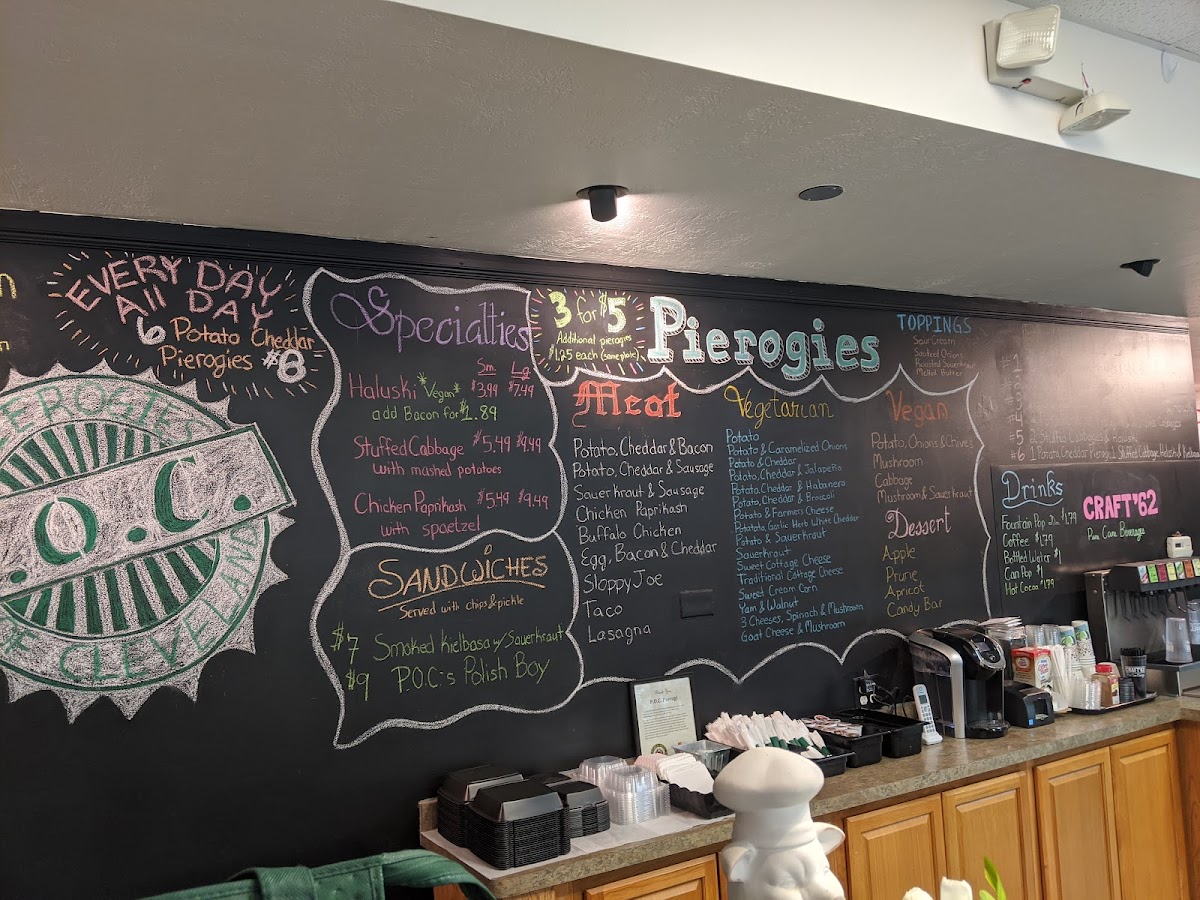 EVERY DAY
All DAY
6 Potato Cheddar
Pierogies $8
P.O.C.
OF CLEVELAND
Specialties
Sm. Lg.
Haluski *Vegan* $3.99 $7.49
add Bacon for $1.89
Stuffed Cabbage $5.49 $9.49
with mashed potatoes
Chicken Paprikash $5.49 $9.49
with spaetzel
SANDWICHES
Served with chips & pickle
$7 Smoked kielbasa w/ Sauerkraut
$9 P.O.C.'s Polish Boy
3 for $5
Additional pierogies
$1.25 each (same plate)
Pierogies
Meat
Potato, Cheddar & Bacon
Potato, Cheddar & Sausage
Sauerkraut & Sausage
Chicken Paprikash
Buffalo Chicken
Egg, Bacon & Cheddar
Sloppy Joe
Taco
Lasagna
Vegetarian
Potato
Potato & Caramelized Onions
Potato & Cheddar
Potato, Cheddar & Jalapeño
Potato, Cheddar & Habanero
Potato, Cheddar & Broccoli
Potato & Farmers Cheese
Potato, Garlic Herb White Cheddar
Potato & Sauerkraut
Sauerkraut
Sweet Cottage Cheese
Traditional Cottage Cheese
Sweet Cream Corn
Yam & Walnut
3 Cheeses, Spinach & Mushroom
Goat Cheese & Mushroom
TOPPINGS
Sour Cream
Sautéed Onions
Roasted Sauerkraut
Melted Butter
Vegan
Potato, Onions & Chives
Mushroom
Cabbage
Mushroom & Sauerkraut
Dessert
Apple
Prune
Apricot
Candy Bar
#5 2 Stuffed Cabbage & Haluski
#6 1 Potato Cheddar Pierogi, 1 Stuffed Cabbage, Haluski &
Drinks
Fountain Pop $1.79
Coffee $1.79
Bottled Water $1
Can Pop $1
Hot Cocoa $1.79
CRAFT '62
Pure Cane Beverage
P.O.C. Pierogi